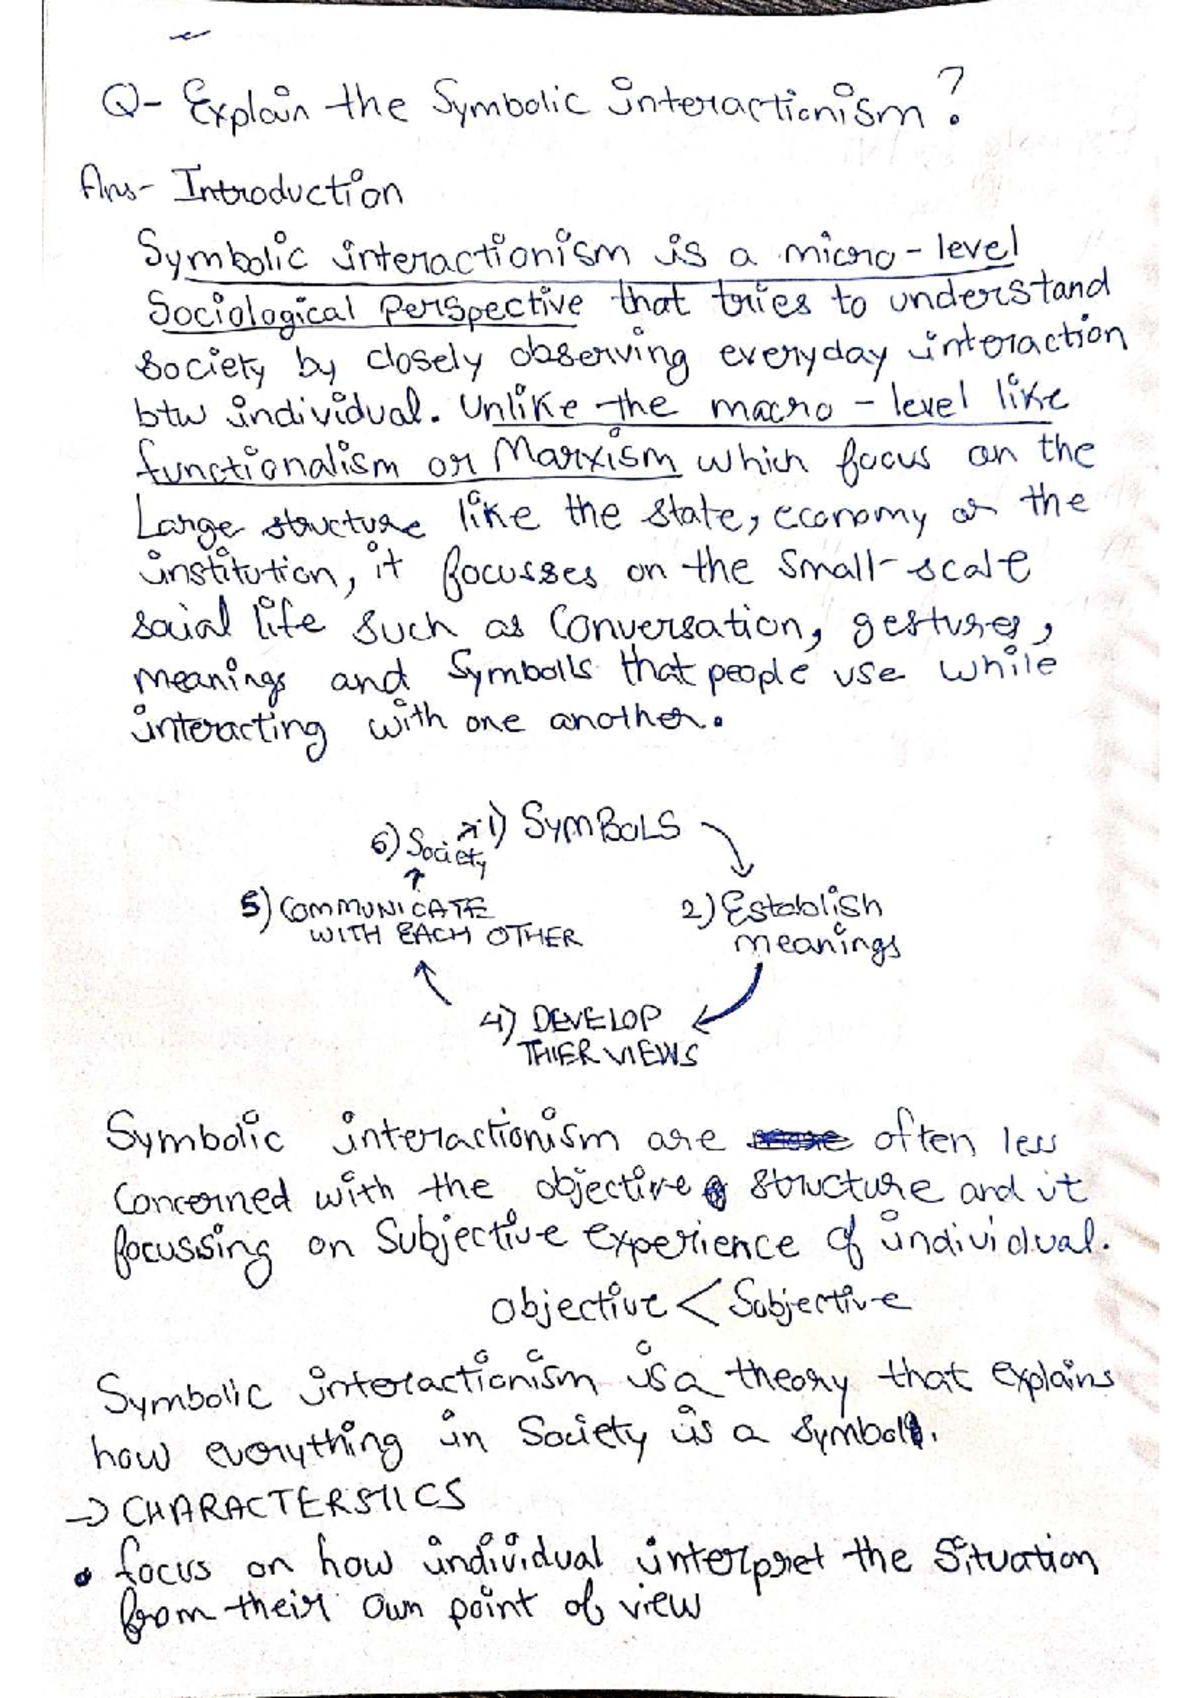 Q- Explain the Symbolic interactionism?
Ans- Introduction
Symbolic interactionism is a micro-level
Sociological Perspective that tries to understand
society by closely observing everyday interaction
btw individual. Unlike the macro-level like
functionalism or Marxism which focus on the
Large structure like the state, economy or the
institution, it focusses on the small-scale
social life such as Conversation, gestures,
meanings and Symbolls that people use while
interacting with one another.
1) SYMBOLS
6) Society
5) COMMUNICATE
WITH EACH OTHER
2) Establish
meanings
4) DEVELOP
THIER VIEWS
Symbolic interactionism are often less
Concerned with the objective structure and it
focussing on Subjective experience of individual.
objective < Subjective
Symbolic interactionism is a theory that explains
how everything in Society is a symbol.
→ CHARACTERSTICS
• focus on how individual interpret the Situation
from their own point of view